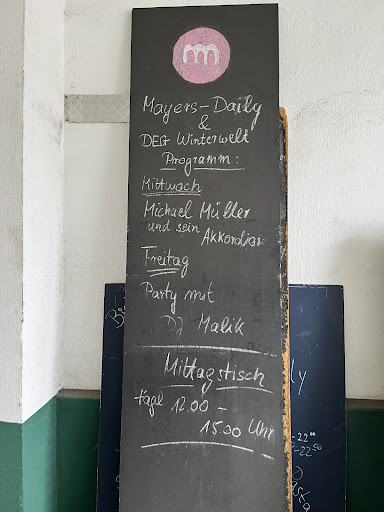 m
Mayers-Daily
&
DEG Winterwelt
Programm:
Mittwoch
Michael Müller
und sein
Akkordion
Freitag
Party mit
DJ Malik
Mittagstisch
tägl 12.00 -
15.00 Uhr